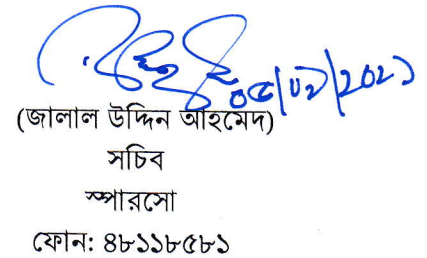 ০৫/০২/২০২১
(জালাল উদ্দিন আহমেদ)
সচিব
স্পারসো
ফোন: ৪৮১১৮৫৮১